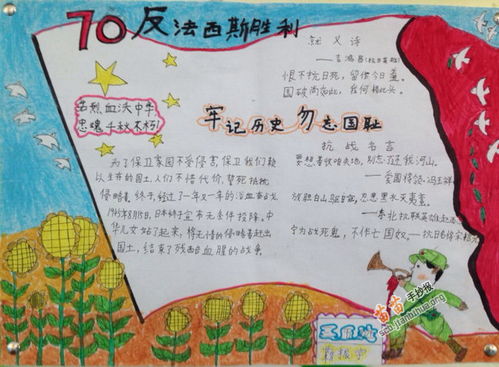 70反法西斯胜利
就义诗
——吉鸿昌(抗日英雄)
恨不抗日死,留作今日羞。
国破尚如此,我何惜此头。
英烈血沃中华
忠魂千秋不朽
牢记历史 勿忘国耻
抗战名言
要想着收咱失地,别忘还我河山。
——爱国将领冯玉祥
宁为战死鬼,不作亡国奴
为了保卫家园不受侵害保卫我们赖
以生存的国土,人们不惜代价,誓死抵抗
侵略者终于,经过了一年又一年的浴血奋战
1945年8月15日,日本终于宣布无条件投降,中
华儿女站了起来,将无情的侵略者赶出
国土,结束了残酷血腥的战争
苗苗手抄报